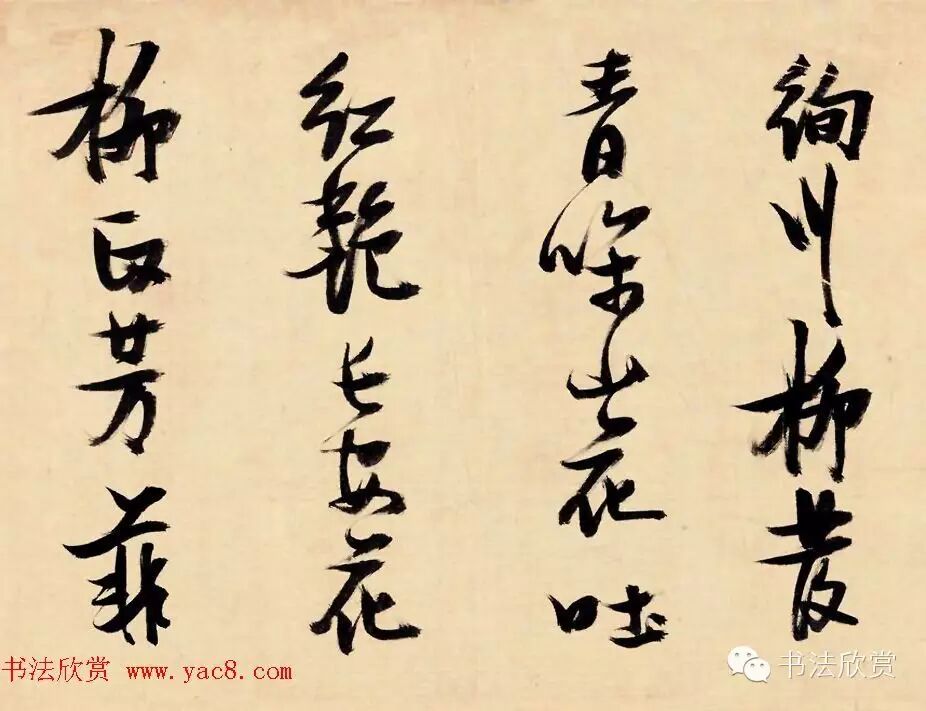 川柳發
青山花吐
紅艷長安花
柳正芳菲
书法欣赏 www.yac8.com
书法欣赏